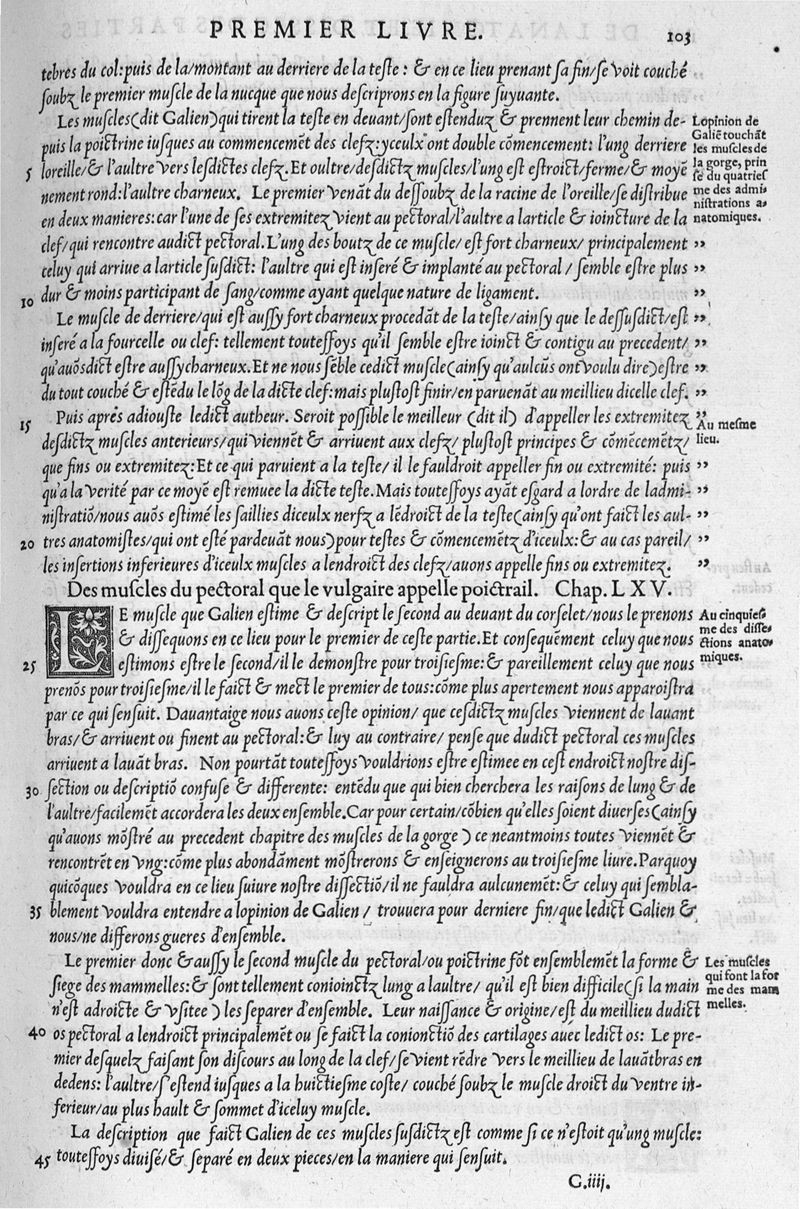 PREMIER LIVRE.
103
tebres du col:puis de la/montant au derriere de la teste : & en ce lieu prenant sa fin/se voit couché
soubz le premier muscle de la nucque que nous descriprons en la figure suyuante.
Les muscles(dit Galien)qui tirent la teste en deuant/sont estenduz & prennent leur chemin de-
puis la poictrine iusques au commencemēt des clefz:yceulx ont double cōmencement: l'ung derriere
5 loreille/& l'aultre vers lesdictes clefz. Et oultre/desdictz muscles/l'ung est estroict/ferme/& moyē
nement rond:l'aultre charneux. Le premier venāt du dessoubz de la racine de l'oreille/se distribue
en deux manieres:car l'une de ses extremitez vient au pectoral/l'aultre a larticle & ioincture de la
clef/qui rencontre audict pectoral. L'ung des boutz de ce muscle/est fort charneux/ principalement
celuy qui arriue a larticle susdict: l'aultre qui est inseré & implanté au pectoral / semble estre plus
10 dur & moins participant de sang/comme ayant quelque nature de ligament.
Le muscle de derriere/qui est aussy fort charneux procedāt de la teste/ainsy que le dessusdict/est
inseré a la fourcelle ou clef: tellement toutessoys qu'il semble estre ioinct & contigu au precedent/
qu'auōsdict estre aussy charneux. Et ne nous sēble cedict muscle(ainsy qu'aulcūs ont voulu dire)estre
du tout couché & estēdu le lōg de la dicte clef:mais plustost finir/en paruenāt au meillieu dicelle clef.
15 Puis aprés adiouste ledict autheur. Seroit possible le meilleur (dit il) d'appeller les extremitez
desdictz muscles anterieurs/qui viennēt & arriuent aux clefz/ plustost principes & cōmēcemētz/
que fins ou extremitez:Et ce qui paruient a la teste/ il le fauldroit appeller fin ou extremité: puis
qu'a la verité par ce moyē est remuee la dicte teste. Mais toutessoys ayāt esgard a lordre de ladmi-
nistratiō/nous auōs estimé les saillies diceulx nerfz a lēdroict de la teste(ainsy qu'ont faict les aul-
20 tres anatomistes/qui ont esté pardeuāt nous)pour testes & cōmencemētz d'iceulx: & au cas pareil/
les insertions inferieures d'iceulx muscles a lendroict des clefz/auons appelle fins ou extremitez.
Lopinion de
Galiē touchāt
les muscles de
la gorge, prin
se du quatries
me des admi
nistrations a-
natomiques.
”
”
”
”
”
”
”
”
Au mesme
lieu.
”
”
”
”
”
Des muscles du pectoral que le vulgaire appelle poictrail. Chap. LXV.
LE muscle que Galien estime & descript le second au deuant du corselet/nous le prenons
& dissequons en ce lieu pour le premier de ceste partie. Et consequēment celuy que nous
25 estimons estre le second/il le demonstre pour troisiesme: & pareillement celuy que nous
prenōs pour troisiesme/il le faict & mect le premier de tous:cōme plus apertement nous apparoistra
par ce qui sensuit. Dauantaige nous auons ceste opinion/ que cesdictz muscles viennent de lauant
bras/& arriuent ou finent au pectoral:& luy au contraire/ pense que dudict pectoral ces muscles
arriuent a lauāt bras. Non pourtāt toutessoys vouldrions estre estimee en cest endroict nostre dis-
30 section ou descriptiō confuse & differente: entēdu que qui bien cherchera les raisons de lung & de
l'aultre/facilemēt accordera les deux ensemble. Car pour certain/cōbien qu'elles soient diuerses(ainsy
qu'auons mōstré au precedent chapitre des muscles de la gorge) ce neantmoins toutes viennēt &
rencontrēt en vng:cōme plus abondāment mōstrerons & enseignerons au troisiesme liure. Parquoy
quicōques vouldra en ce lieu suiure nostre dissectiō/il ne fauldra aulcunemēt:& celuy qui sembla-
35 blement vouldra entendre a lopinion de Galien / trouuera pour derniere fin/que ledict Galien &
nous/ne differons gueres d'ensemble.
Au cinquies
me des disse
ctions anato
miques.
Le premier donc & aussy le second muscle du pectoral/ou poictrine fōt ensemblemēt la forme &
siege des mammelles:& sont tellement conioinctz lung a laultre/ qu'il est bien difficile(si la main
n'est adroicte & vsitee ) les separer d'ensemble. Leur naissance & origine/est du meillieu dudict
40 os pectoral a lendroict principalemēt ou se faict la conionctiō des cartilages auec ledict os: Le pre-
mier desquelz faisant son discours au long de la clef/se vient rēdre vers le meillieu de lauātbras en
dedens: l'aultre/s'estend iusques a la huictiesme coste/ couché soubz le muscle droict du ventre in-
ferieur/au plus hault & sommet d'iceluy muscle.
Les muscles
qui font la for
me des mam
melles.
La description que faict Galien de ces muscles susdictz est comme si ce n'estoit qu'ung muscle:
45 toutessoys diuisé/& separé en deux pieces/en la maniere qui sensuit.
G.iiij.